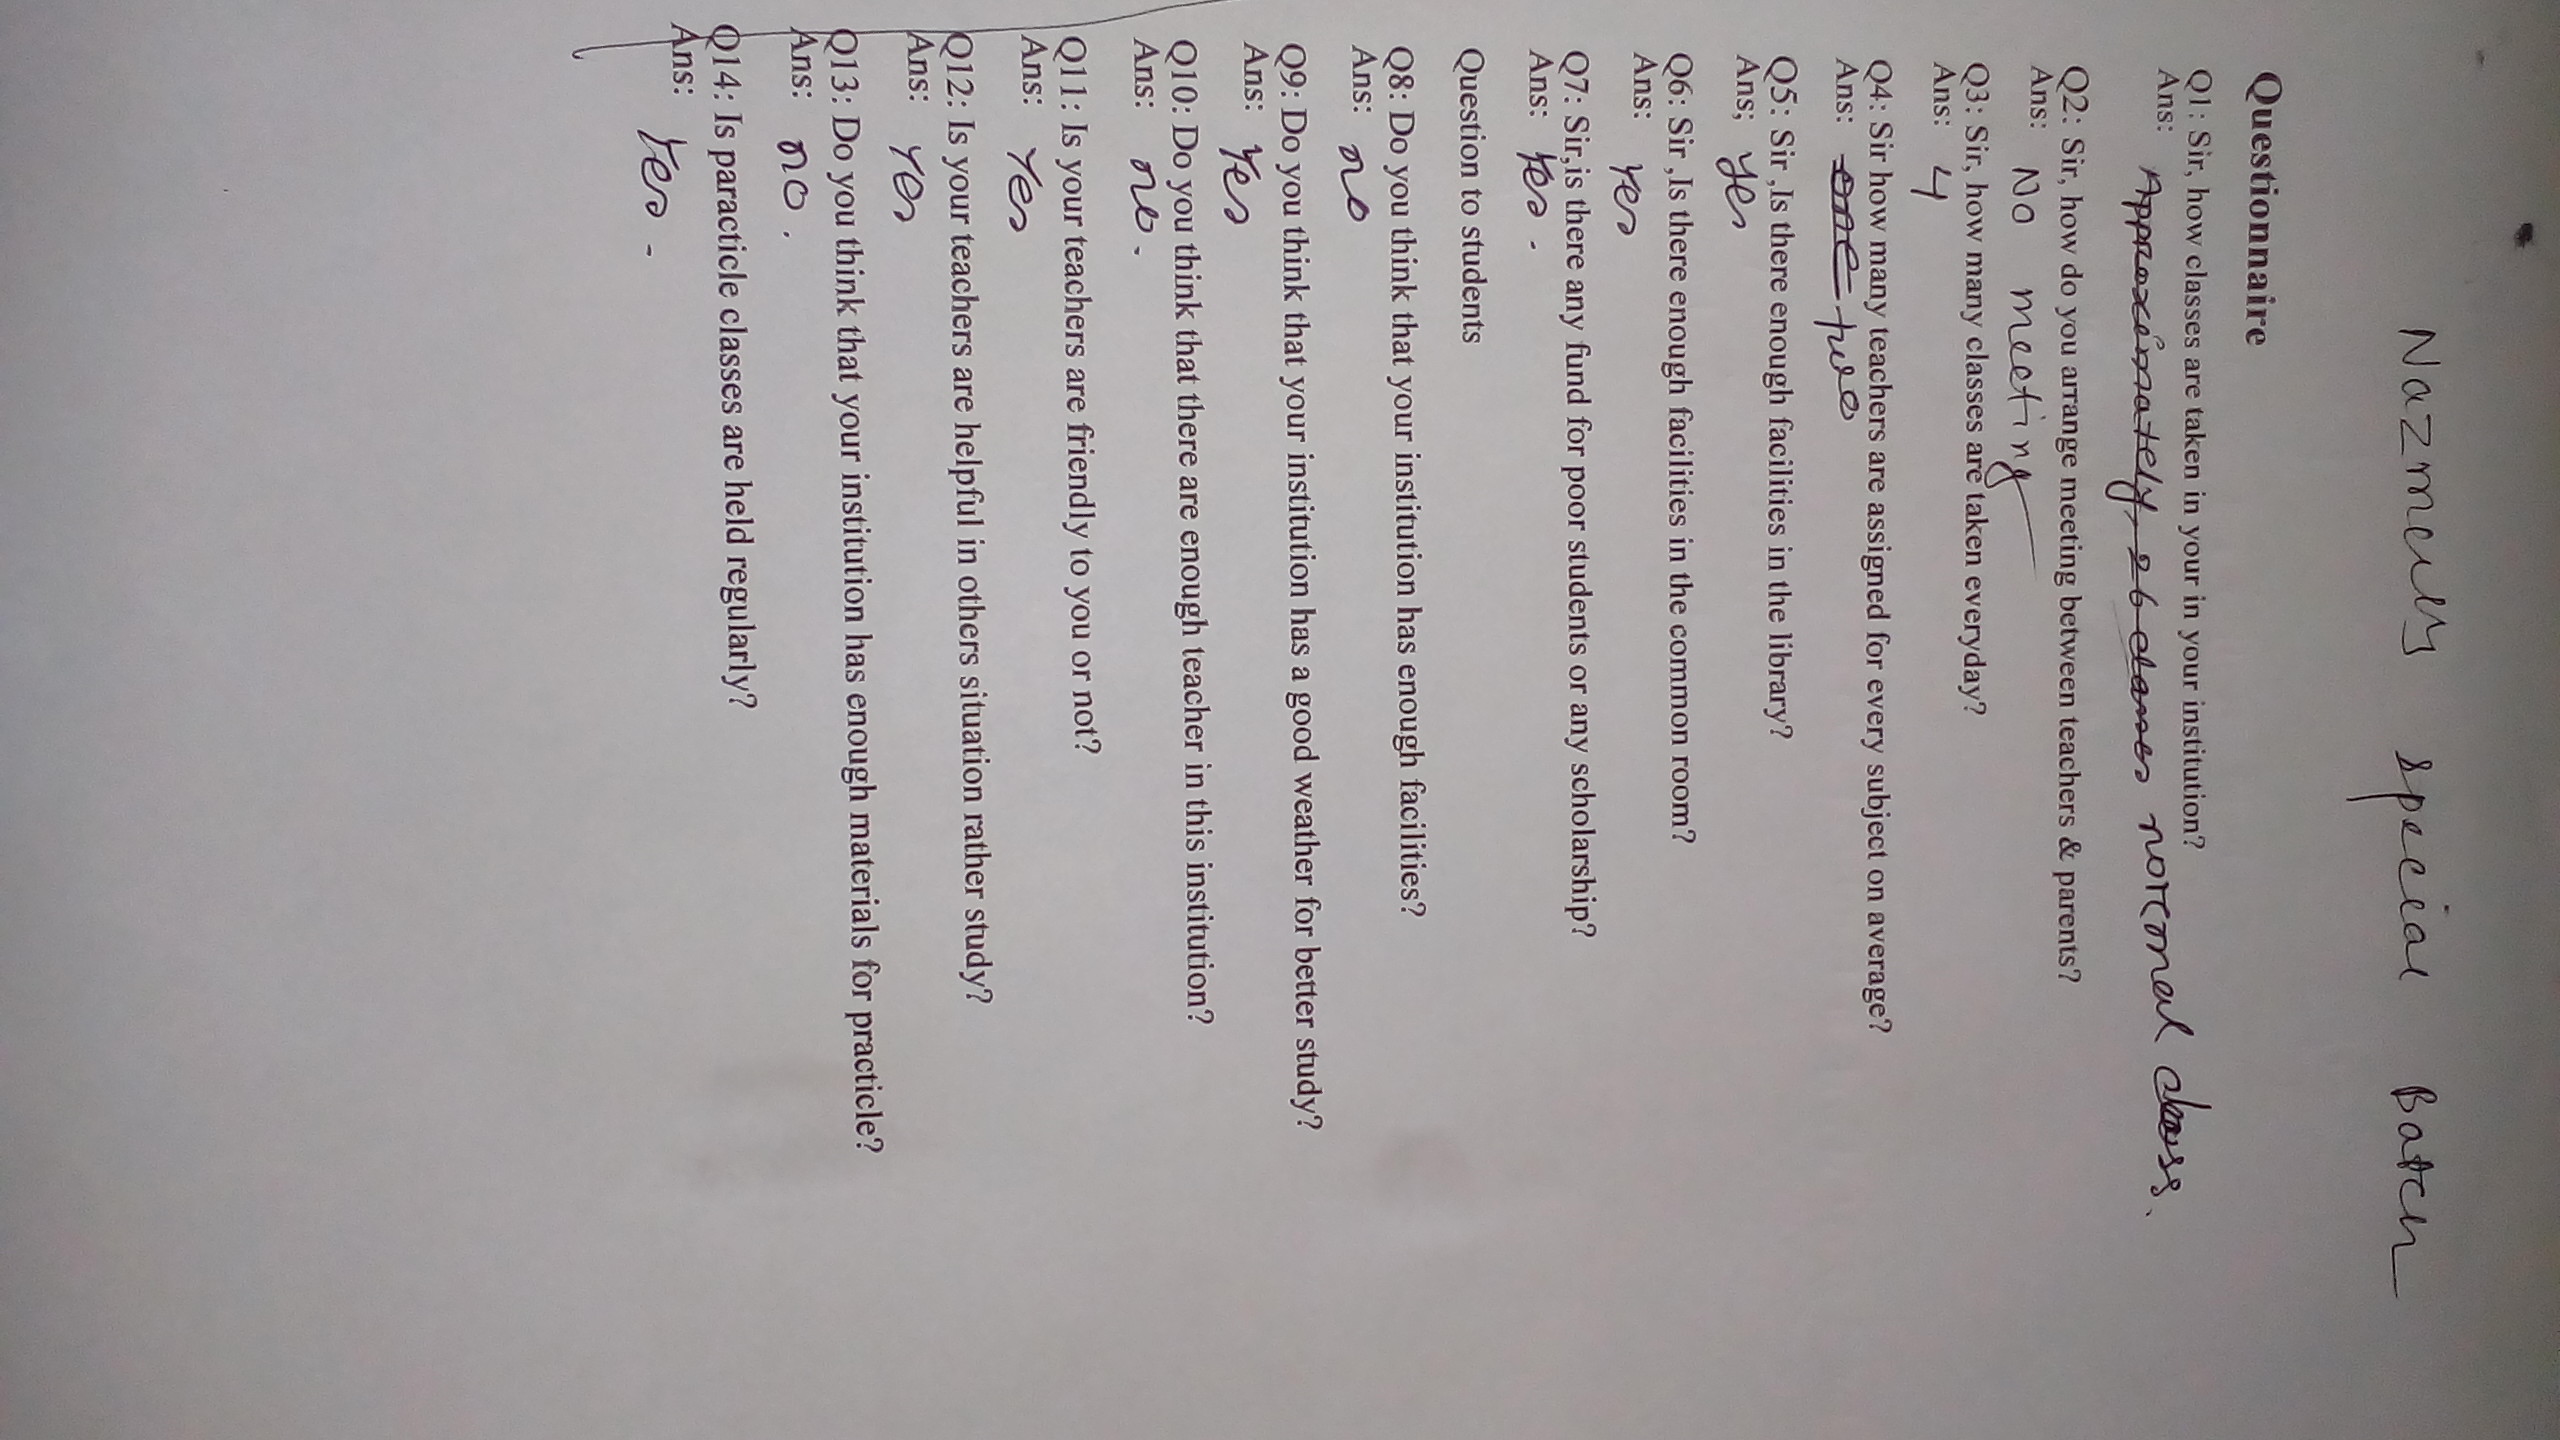 special Batch
Questionnaire
Q1: Sir, how classes are taken in your in your institution?
Ans: Approximately, 26 classes normal class.
Q2: Sir, how do you arrange meeting between teachers & parents?
Ans: No meeting
Q3: Sir, how many classes are taken everyday?
Ans: 4
Q4: Sir how many teachers are assigned for every subject on average?
Ans: one two
Q5: Sir ,Is there enough facilities in the library?
Ans; yes
Q6: Sir ,Is there enough facilities in the common room?
Ans: Yes
Q7: Sir,is there any fund for poor students or any scholarship?
Ans: Yes.
Question to students
Q8: Do you think that your institution has enough facilities?
Ans: no
Q9: Do you think that your institution has a good weather for better study?
Ans: Yes
Q10: Do you think that there are enough teacher in this institution?
Ans: no.
Q11: Is your teachers are friendly to you or not?
Ans: Yes
Q12: Is your teachers are helpful in others situation rather study?
Ans: Yes
Q13: Do you think that your institution has enough materials for practicle?
Ans: no.
Q14: Is paracticle classes are held regularly?
Ans: Yes.